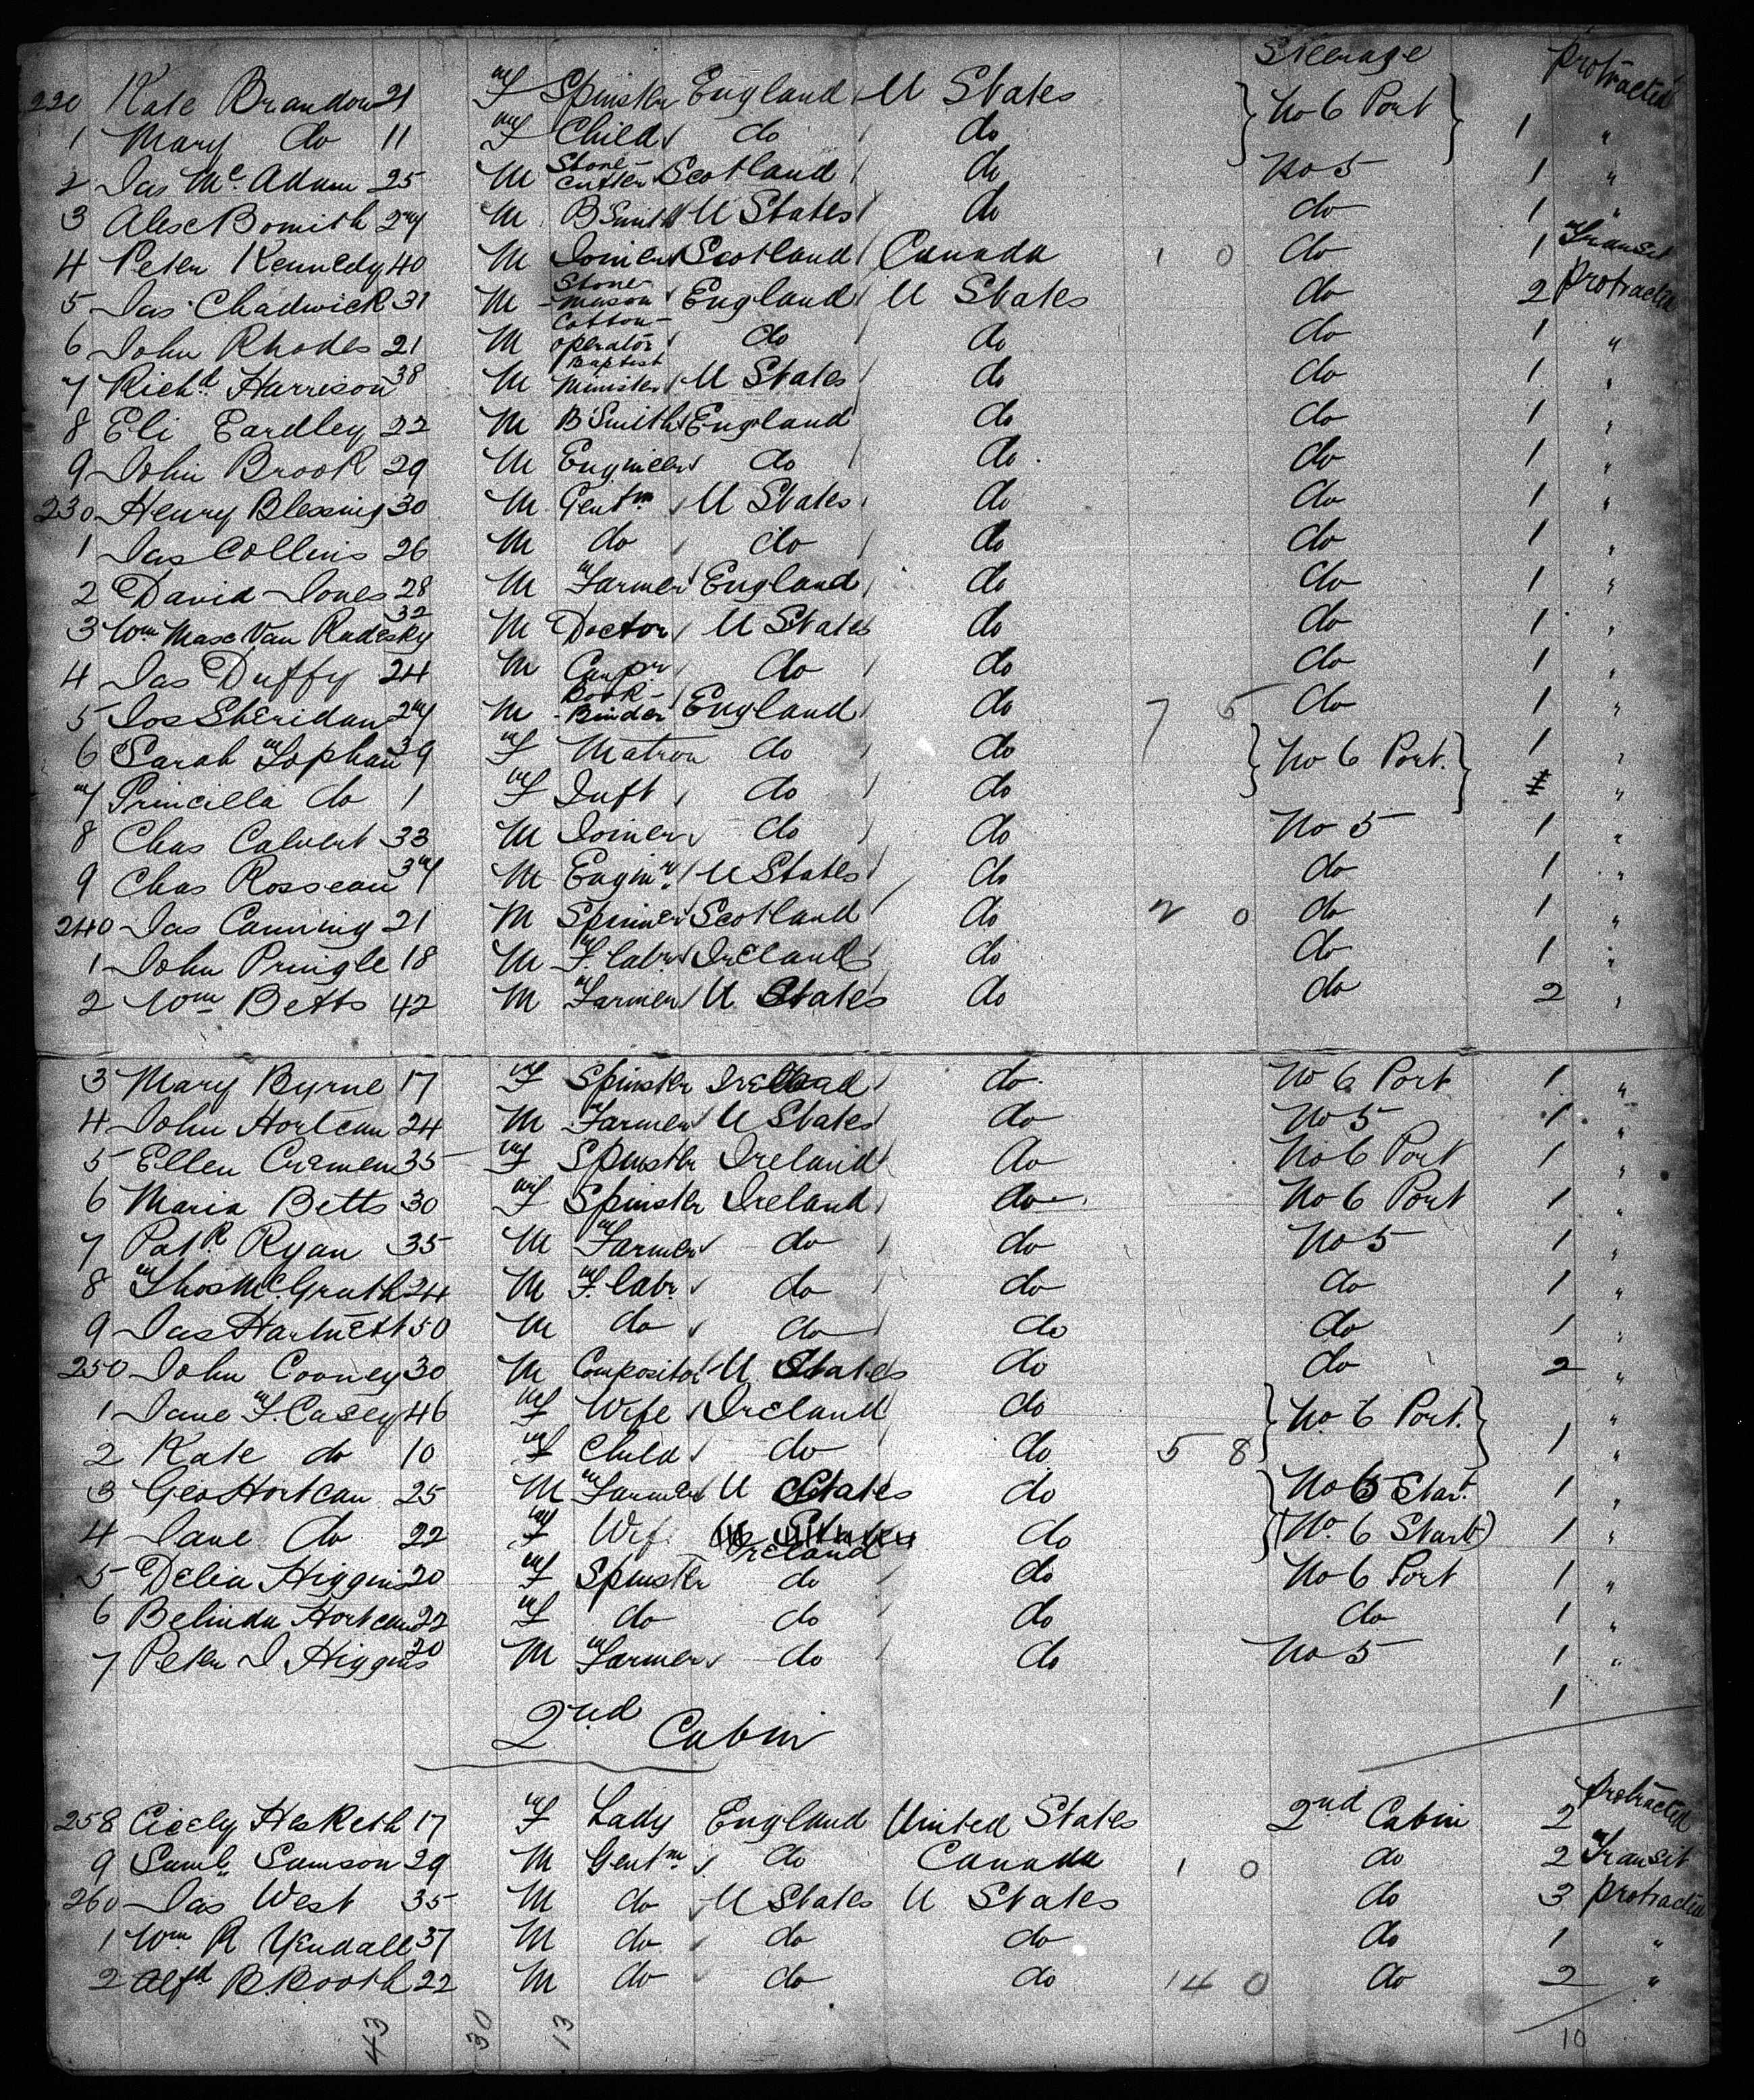 Steerage Protracted
220 Kate Brandon 21 F Spinster England U States No 6 Port
1 Mary do 11 F Child do do 1 "
2 Jas Mc. Adam 25 M Stone-cutter Scotland do No 5 1 "
3 Alex Bomith 27 M B Smith U States do do 1 "
4 Peter Kennedy 40 M Joiner Scotland Canada 1 0 do 1 Transit
5 Jas Chadwick 31 M Stone-mason England U States do 2 Protracted
6 John Rhodes 21 M Cotton-operator do do do 1 "
7 Richd. Harrison 38 M Baptist Minister U States do do 1 "
8 Eli Eardley 22 M B Smith England do do 1 "
9 John Brook 29 M Engineer do do do 1 "
230 Henry Blessing 30 M Gentm U States do do 1 "
1 Jas Collins 26 M do do do do 1 "
2 David Jones 28 M Farmer England do do 1 "
3 Wm Max Van Radesky 32 M Doctor U States do do 1 "
4 Jas Duffy 24 M Carpr do do do 1 "
5 Jos Sheridan 27 M Book-Binder England do 7 5 do 1 "
6 Sarah Tophan 39 F Matron do do No 6 Port. 1 "
7 Princilla do 1 F Inft do do "
8 Chas Calvert 33 M Joiner do do No 5 1 "
9 Chas Rosseau 37 M Enginr. U States do do 1 "
240 Jas Canning 21 M Spinner Scotland do 2 0 do 1 "
1 John Pringle 18 M F. labr Ireland do do 1 "
2 Wm Betts 42 M Farmer U States do do 2 "
3 Mary Byrne 17 F Spinster Ireland do No 6 Port 1 "
4 John Hortcan 24 M Farmer U States do No 5 1 "
5 Ellen Cremen 35 F Spinster Ireland do No 6 Port 1 "
6 Maria Betts 30 F Spinster Ireland do No 6 Port 1 "
7 Patk. Ryan 35 M Farmer do do No 5 1 "
8 Thos Mc. Grath 24 M F. labr. do do do 1 "
9 Jas Hartnett 50 M do do do do 1 "
250 John Cooney 30 M Compositor U States do do 2 "
1 Jane F. Casey 46 F Wife Ireland do No. 6 Port. "
2 Kate do 10 F Child do do 5 8 1 "
3 Geo Hortcan 25 M Farmer U States do No 6 Star. 1 "
4 Jane do 22 F Wife Ireland do (No. 6 Starb) 1 "
5 Delia Higgins 20 F Spinster do do No 6 Port 1 "
6 Belinda Hortcan 22 F do do do do 1 "
7 Peter J Higgins 20 M Farmer do do No 5 1 "
1
2nd Cabin
Protracted
258 Cicely Hesketh 17 F Lady England United States 2nd Cabin 2
9 Saml. Samson 29 M Gentm. do Canada 1 0 do 2 Transit
260 Jas West 35 M do U States U States do 3 Protracted
1 Wm R Yendall 37 M do do do do 1 "
2 Alfd B. Booth 22 M do do do 14 0 do 2 "
43 30 13 10